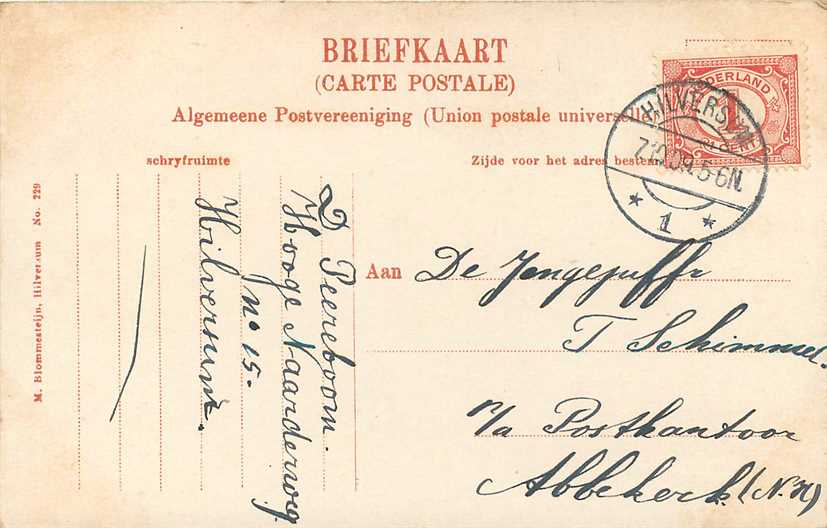 BRIEFKAART
(CARTE POSTALE)
Algemeene Postvereeniging (Union postale universelle)
schryfruimte
Zijde voor het adres bestemd
DERLAND
1
CENT
HILVERSUM
7.10.09.5-6N.
* 1 *
M. Blommesteijn, Hilversum No. 229
D Peereboom.
Hooge Naarderweg
No 15.
Hilversum.
Aan De Jongejuffr
T Schimmel.
p/a Postkantoor
Abbekerk (N.H)